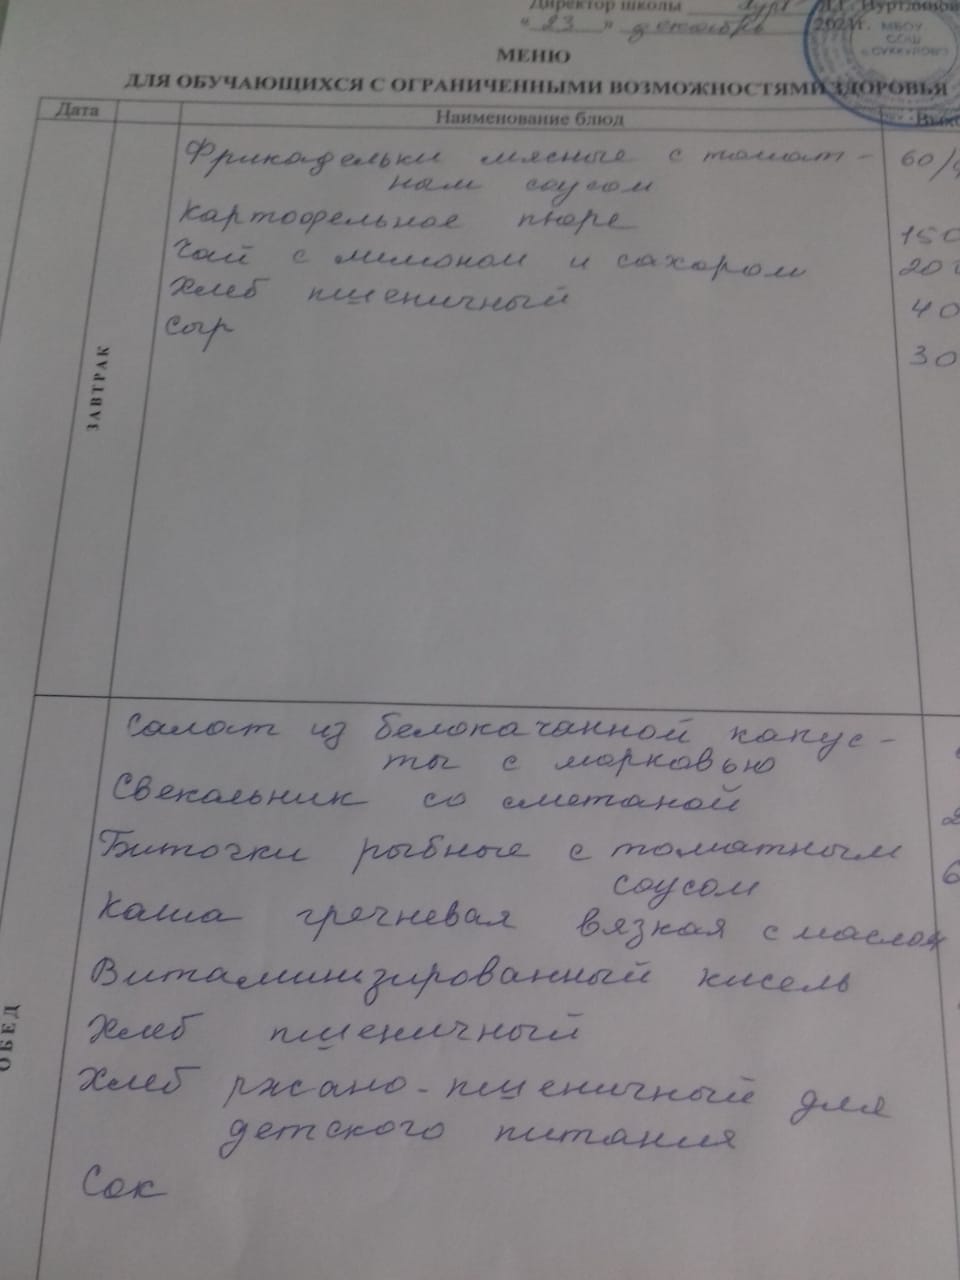 Директор школы
" 23 " декабрь 2021г.
МБОУ
СОШ
МЕНЮ
ДЛЯ ОБУЧАЮЩИХСЯ С ОГРАНИЧЕННЫМИ ВОЗМОЖНОСТЯМИ ЗДОРОВЬЯ
Дата Наименование блюд
Фрикадельки мясные с томат- 60/
ном соусом
Картофельное пюре 150
Чай с лимоном и сахаром 20
Хлеб пшеничный 40
Сыр 30
ЗАВТРАК
Салат из белокачанной капус-
ты с морковью
Свекольник со сметаной
Биточки рыбные с томатным 6
соусом
Каша гречневая вязкая с маслом
Витаминизированный кисель
Хлеб пшеничный
Хлеб ржано-пшеничный для
детского питания
Сок
ОБЕД